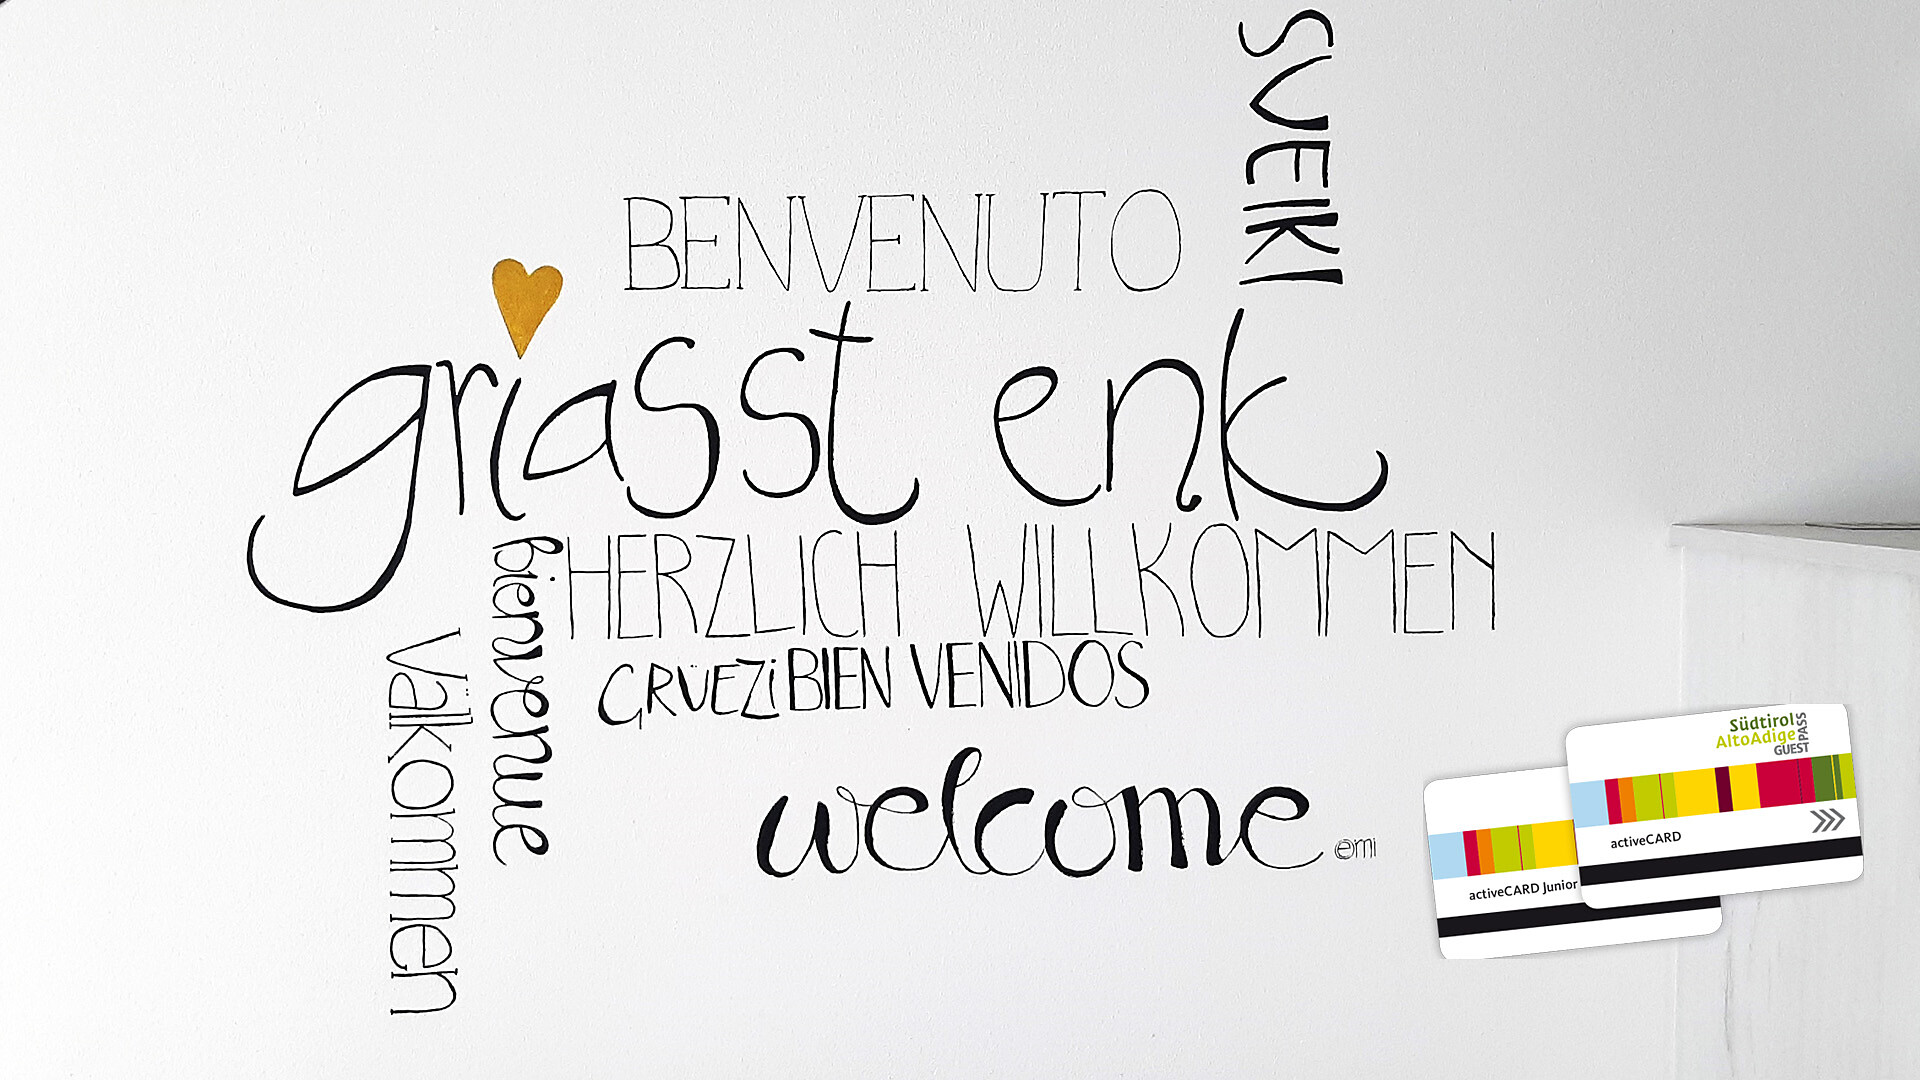 SVEIKI
BENVENUTO
griasst enk
HERZLICH WILLKOMMEN
bienvenue
GRÜEZi BIEN VENIDOS
Välkommen
welcome
emi
Südtirol
AltoAdige
GUEST PASS
activeCARD
activeCARD Junior